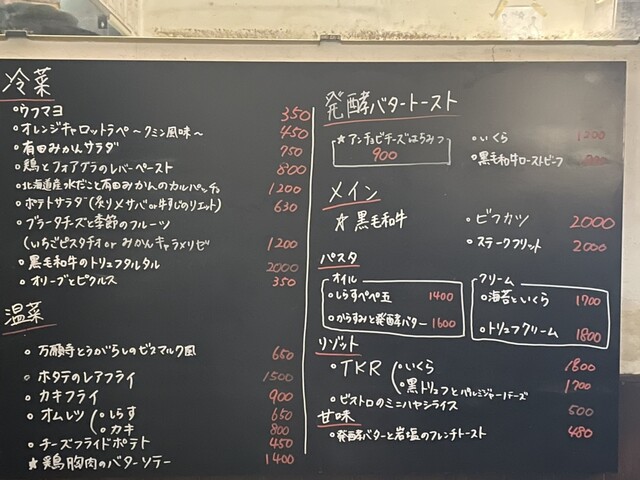 冷菜
○ウフマヨ 350
○オレンジキャロットラペ〜クミン風味〜 450
○有田みかんサラダ 750
○鶏とフォアグラのレバーペースト 800
○北海道産水だこと有田みかんのカルパッチョ 1200
○ポテトサラダ(炙り〆サバor牛すじのリエット) 630
○ブラータチーズと季節のフルーツ
(いちごピスタチオ or みかんキャラメリゼ 1200
○黒毛和牛のトリュフタルタル 2000
○オリーブとピクルス 350
温菜
○万願寺とうがらしのビスマルク風 650
○ホタテのレアフライ 1500
○カキフライ 900
○オムレツ(○しらす 650
○カキ 800
○チーズフライドポテト 450
★鶏胸肉のバターソテー 1400
発酵バタートースト
★アンチョビチーズはちみつ
900
○いくら 1200
○黒毛和牛ローストビーフ
メイン
☆黒毛和牛
○ビフカツ 2000
○ステークフリット 2000
パスタ
オイル
○しらすペペ玉 1400
○からすみと発酵バター 1600
クリーム
○海苔といくら 1700
○トリュフクリーム 1800
リゾット
○TKR(○いくら 1800
○黒トリュフとパルミジャーノチーズ 1700
○ビストロのミニハヤシライス 500
甘味
○発酵バターと岩塩のフレンチトースト 480